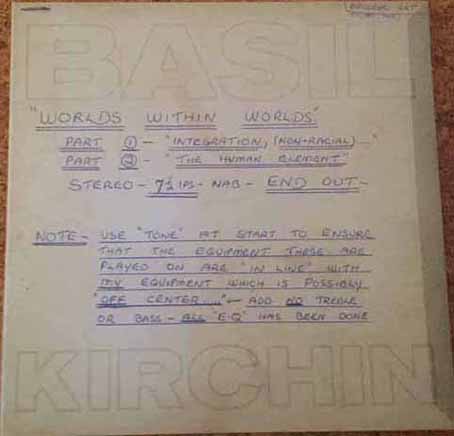 BASIL
"WORLDS WITHIN WORLDS"
PART ① - "INTEGRATION, (NON-RACIAL)..."
PART ② - "THE HUMAN ELEMENT"
STEREO - 7½ IPS - NAB - END OUT -
NOTE - USE "TONE" AT START TO ENSURE
THAT THE EQUIPMENT THESE ARE
PLAYED ON ARE "IN LINE" WITH
MY EQUIPMENT WHICH IS POSSIBLY
"OFF CENTER...." - ADD NO TREBLE
OR BASS - ALL "E-Q" HAS BEEN DONE
KIRCHIN